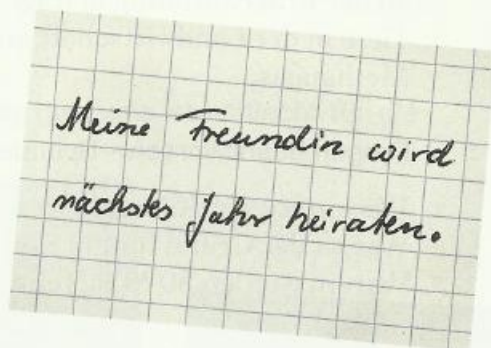 Meine Freundin wird
nächstes Jahr heiraten.